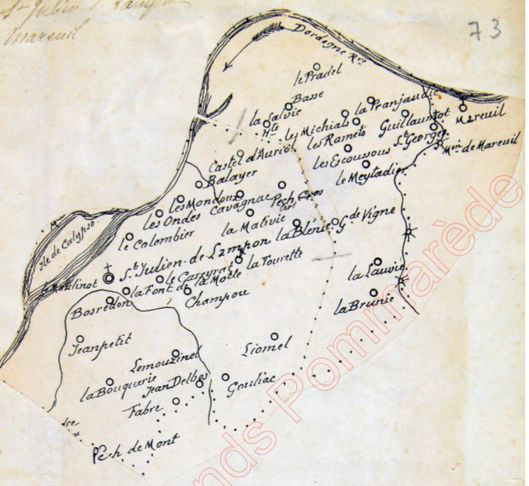 St Julien
Mareuil
73
Dordogne Rre
le Pradel
Basse
la Salvie
Hte
la Pranjaudie
Mareuil
les Michials
Guillaumot
les Ramets
Castel d'Auriol
les Escoussous
St Georges
Min de Mareuil
Balayer
le Meyladier
les Mondoux
Cavagnac
Pech Gros
les Ondes
la Mativie
la Blénie
Gd de Vigne
Ile de Calypso
le Colombier
St Julien-de-Lampon
la Tourette
le Moulinot
le Carryrat
la Font de la Motte
la Lauvie
Bosredon
Champou
la Brunie
Jeanpetit
Lemouzinet
Liomel
la Bouquerie
Jean Delbos
Gouliac
Fabre
Pech de Mont
nds Pommarède